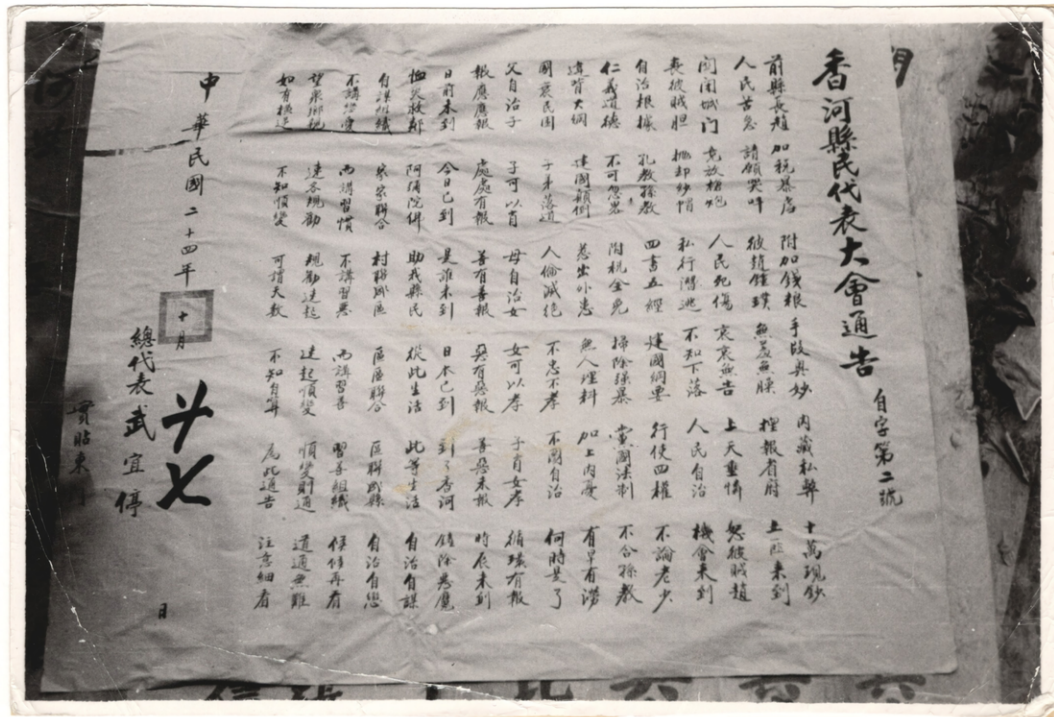 香河縣民代表大會通告 自字第二號
前縣長趙 加税暴虐 附加錢粮 手段奥妙 内藏私弊 十萬現鈔
人民苦急 請願哭呼 彼趙鍾璞 無羞無臊 捏報省府 上匪来到
関闭城门 竟放槍炮 人民死傷 哀哀無告 上天垂憐 恕彼賊趙
喪彼賊胆 抛却纱帽 私行潛逃 不知下落 人民自治 機會来到
自治根據 孔教孫教 四書五經 建國綱要 行使四權 不論老少
仁義道德 不可忽畧 附税全免 掃除强暴 黨國法制 不合孫教
違背大綱 建國顛倒 惹出外患 無人理料 加上内憂 有旱有澇
國衰民困 子弟落道 人倫滅絕 不忠不孝 不圖自治 何時是了
父自治子 子可以肖 母自治女 女可以孝 子肖女孝 循環有報
報應應報 處處有報 善有善報 惡有惡報 善惡未報 時辰未到
日前未到 今日已到 是誰来到 日本已到 到了香河 除惡魔
恤災救鄰 阿彌陀佛 助我縣民 從此生活 此等生活 自治自謀
自謀組織 家家聯合 村聯鄉區 區區聯合 區聯成縣 自治自戀
不講戀愛 而講習慣 不講習惡 而講習善 習善組織 再看
望衆鄉親 達各規勸 規勸達起 達起順變 順變則通 道通無難
如有 不知順變 可謂天数 不知自弊 爲此通告 注意細看
中華民國二十四年十月廿七日
總代表武宜停
實貼東